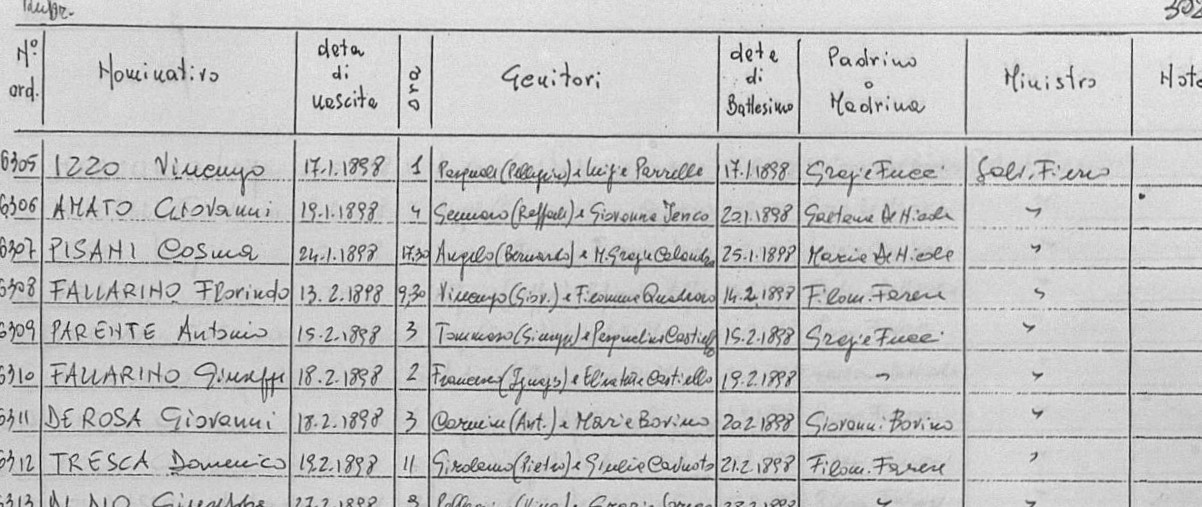 N° ord. Nominativo data di nascita ora Genitori data di Battesimo Padrino o Madrina Ministro Note
6305 IZZO Vincenzo 17.1.1898 1 Pasquale (Pellegrino) e Luigia Parrella 17.1.1898 Grazia Fucci Salv. Fierro
6306 AMATO Giovanni 19.1.1898 4 Gennaro (Raffaele) e Giovanna Ienco 20.1.1898 Gaetana De Nicola "
6307 PISANI Cosma 24.1.1898 17.30 Angelo (Bernardo) e M. Grazia Colombo 25.1.1898 Maria De Nicola "
6308 FALLARINO Florindo 13.2.1898 9,30 Vincenzo (Giov.) e Filomena 14.2.1898 Filom. "
6309 PARENTE Antonio 15.2.1898 3 Tommaso (Giuseppe) e Pasqualina 15.2.1898 Grazia Fucci "
6310 FALLARINO Giuseppe 18.2.1898 2 Francesco (Ignazio) e Elisabetta Castiello 19.2.1898 " "
6311 DE ROSA Giovanni 18.2.1898 3 Carmine (Ant.) e Maria Bovino 20.2.1898 Giovanni Bovino "
6312 TRESCA Domenico 19.2.1898 11 Girolamo (Pietro) e Giulia 21.2.1898 Filom. "
6313 Giuseppe